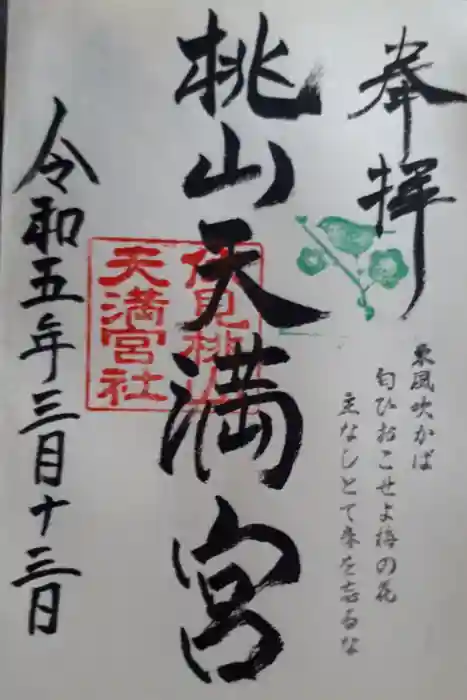 奉拝
東風吹かば
匂ひおこせよ梅の花
主なしとて春を忘るな
桃山天満宮
伏見桃山
天満宮社
令和五年三月十三日